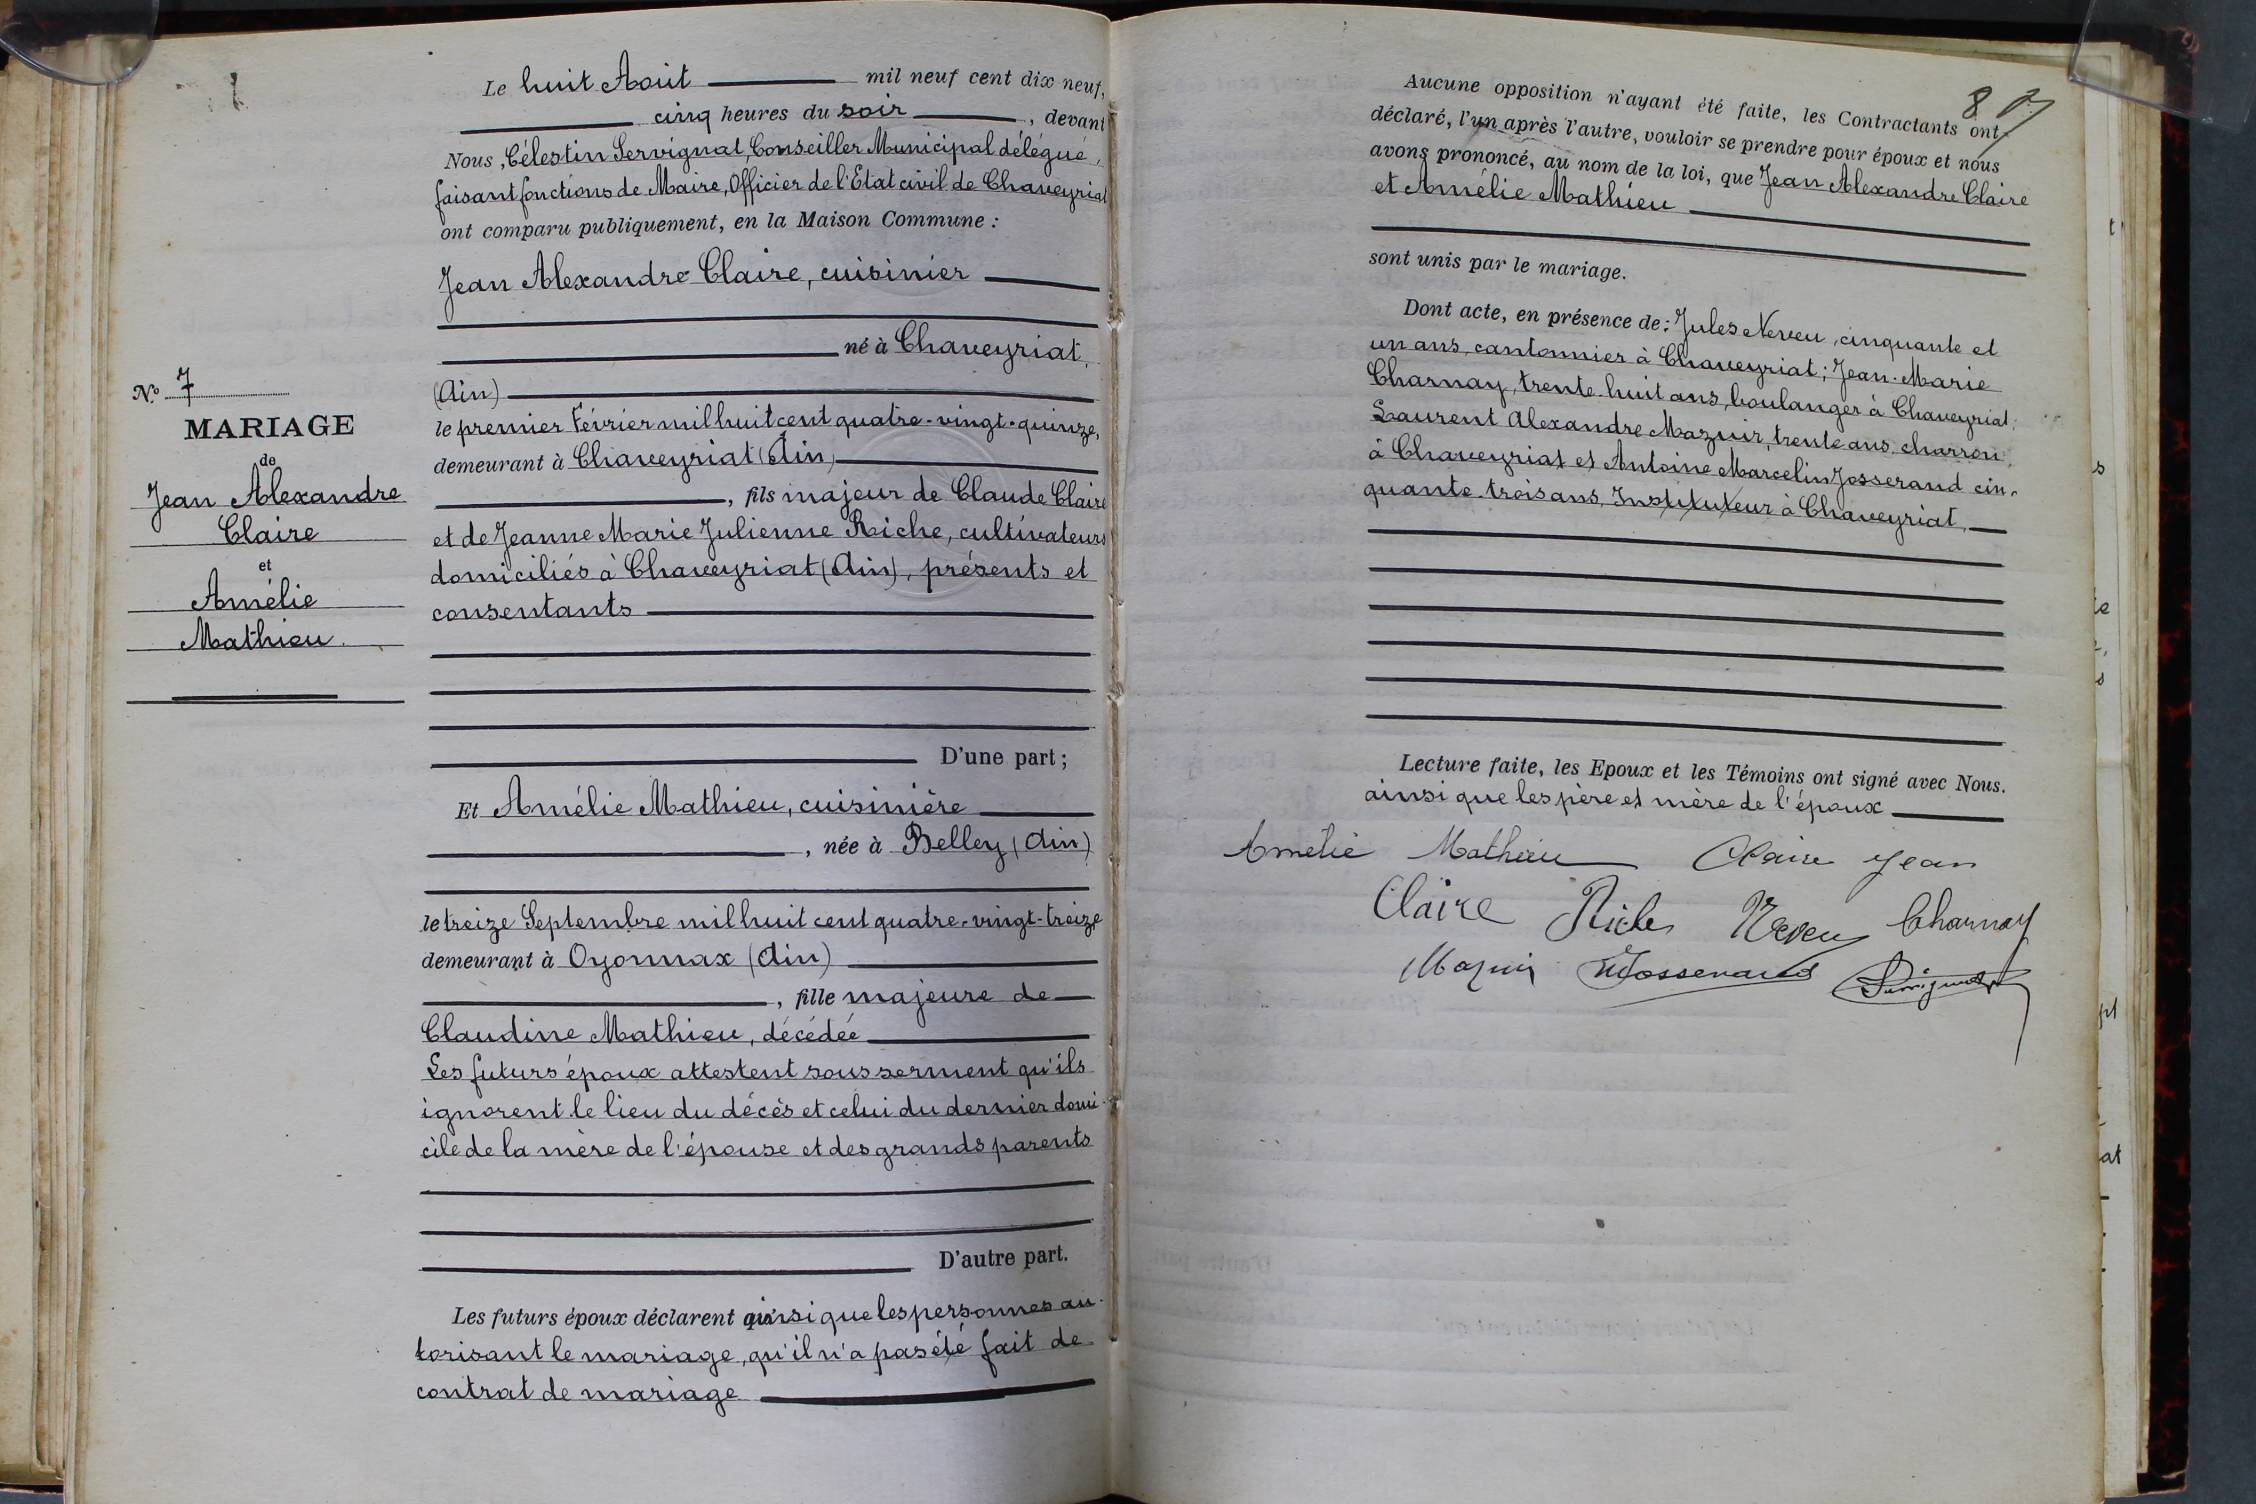 Le huit Août mil neuf cent dix neuf,
cinq heures du soir, devant
Nous, Célestin Servignat, Conseiller Municipal délégué,
faisant fonctions de Maire, Officier de l'Etat civil de Chaveyriat
ont comparu publiquement, en la Maison Commune :
Jean Alexandre Claire, cuisinier
né à Chaveyriat,
(Ain)
le premier Février mil huit cent quatre-vingt-quinze,
demeurant à Chaveyriat (Ain)
, fils majeur de Claude Claire
et de Jeanne Marie Julienne Riche, cultivateurs
domiciliés à Chaveyriat (Ain), présents et
consentants
D'une part ;
N° 7
MARIAGE
de
Jean Alexandre
Claire
et
Amélie
Mathieu.
Et Amélie Mathieu, cuisinière
, née à Belley (Ain)
le treize Septembre mil huit cent quatre-vingt-treize
demeurant à Oyonnax (Ain)
, fille majeure de
Claudine Mathieu, décédée
Les futurs époux attestent sous serment qu'ils
ignorent le lieu du décès et celui du dernier domi-
cile de la mère de l'épouse et des grands parents
D'autre part.
Les futurs époux déclarent ainsi que les personnes au-
torisant le mariage, qu'il n'a pas été fait de
contrat de mariage
8
Aucune opposition n'ayant été faite, les Contractants ont
déclaré, l'un après l'autre, vouloir se prendre pour époux et nous
avons prononcé, au nom de la loi, que Jean Alexandre Claire
et Amélie Mathieu
sont unis par le mariage.
Dont acte, en présence de : Jules Neveu, cinquante et
un ans, cantonnier à Chaveyriat ; Jean-Marie
Charnay, trente-huit ans, boulanger à Chaveyriat ;
Laurent Alexandre Mazuir, trente ans, charron
à Chaveyriat et Antoine Marcelin Josserand cin-
quante-trois ans, Instituteur à Chaveyriat,
Lecture faite, les Epoux et les Témoins ont signé avec Nous.
ainsi que les père et mère de l'époux
Amélie Mathieu Claire Jean
Claire Riche Neveu Charnay
Mazuir Josserand Servignat